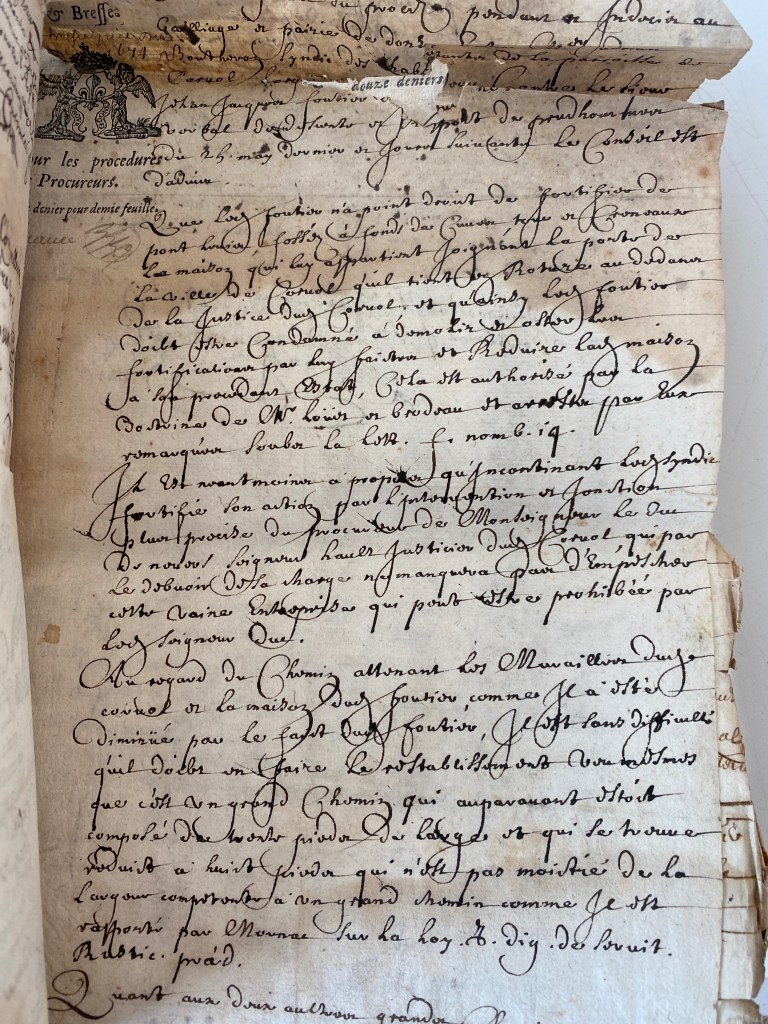 & Bresses
procez pendant et Indecis au
Bailliage et pairie de
1674
scindicq des habitans de la parroisse de
Corvol
douze deniers
contre le sieur
Jehan Jacques foutier
verbal de descente et rapport de prudhommes
our les procedures
du 25. may dernier et jours suivants Le Conseil est
Procureurs.
d'advis.
denier pour demie feuille
Que led foutier n'a point droict de fortifier de
pont levier, fossés à fonds de Cuve, et Creneaux
la maison qui luy appartient Joignant la porte de
La ville de Corvol qu'il tient en Roture au dedans
de la Justice dud Corvol, et qu'ainsy led foutier
doibt estre Condamné à demolir et oster les
fortifications par luy faictes et Reduire lad maison
a son precedant Estat, Cela est authorisé par la
doctrine de Mr. Loüet et brodeau et arrestz par Eux
remarquez soubz la Lett. f. nomb. 14.
Il est neantmoins a propos qu'Incontinant led syndic
fortifie son action par l'Intervention et Jonction
plus precise du procureur de Monseigneur le Duc
De nevers seigneur hault Justicier dud Corvol qui par
Le debvoir de sa charge ne manquera pas d'Empescher
cette vaine Entreprise qui peut estre prohibée par
led seigneur Duc.
Au regard du Chemin attenant les Murailles dud
corvol et la maison dud foutier, comme Il a esté
diminüé par le faict dud foutier, Il est sans difficulté
qu'il doibt en faire Le restablissement veu mesmes
que c'est un grand Chemin qui auparavant estoit
composé de trente pieds de large et qui se trouve
reduict a huict pieds qui n'est pas moictié de la
Largeur competente a un grand chemin comme Il est
rapporté par Mornac sur la loy. 8. dig. de servit.
Rustic. præd.
Quant aux deux aultres grands